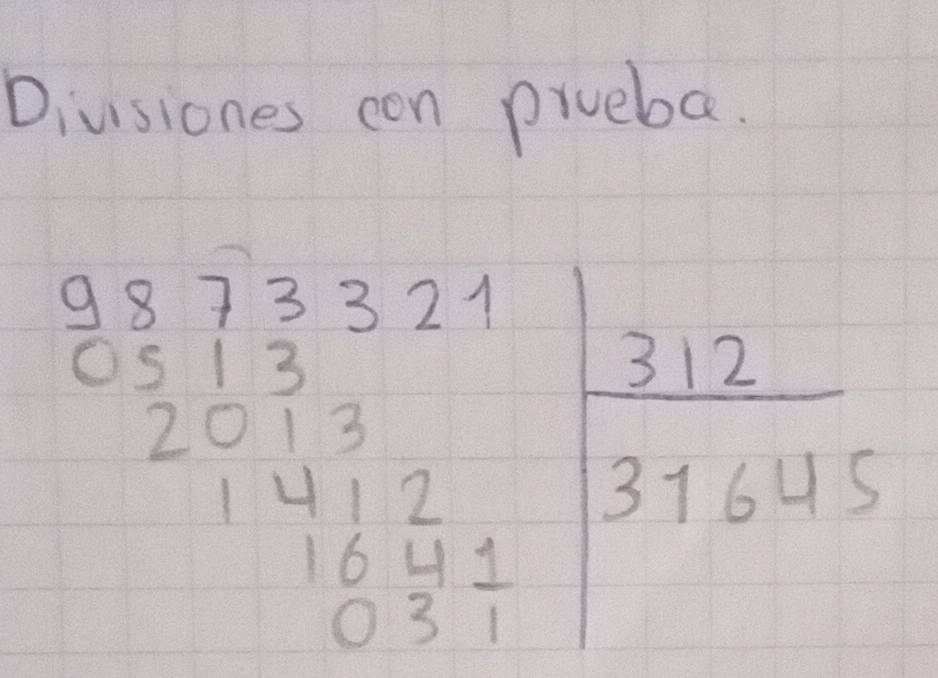 Divisiones con prueba.
9873321
312
0513
2013
1412
31645
1641
031